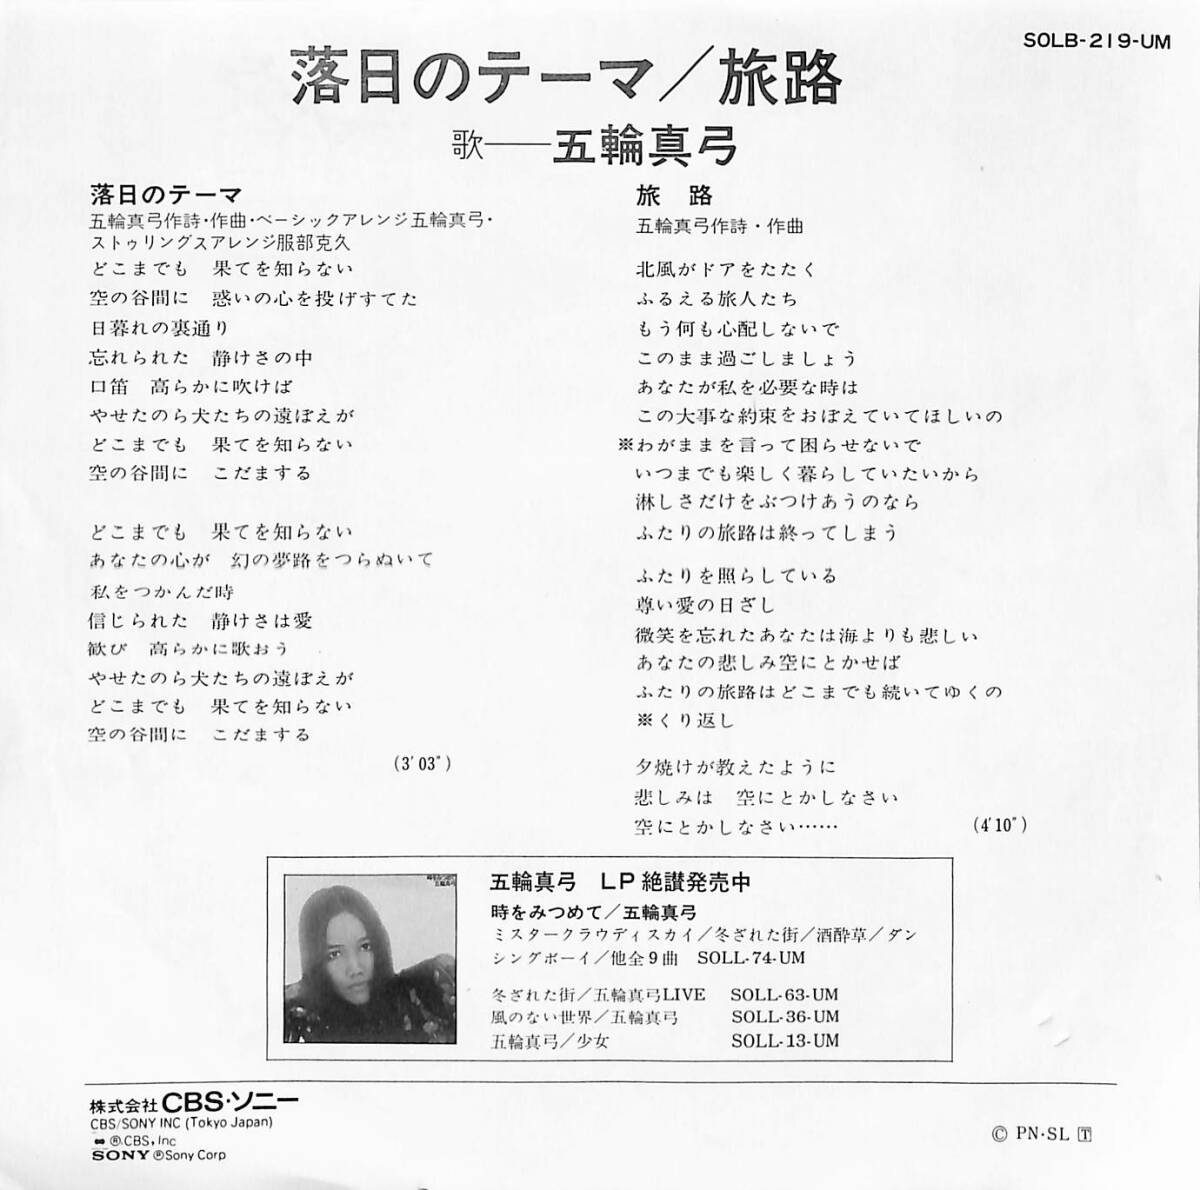 SOLB-219-UM
落日のテーマ／旅路
歌──五輪真弓
落日のテーマ
五輪真弓作詩・作曲・ベーシックアレンジ五輪真弓・
ストゥリングスアレンジ服部克久
どこまでも　果てを知らない
空の谷間に　惑いの心を投げすてた
日暮れの裏通り
忘れられた　静けさの中
口笛　高らかに吹けば
やせたのら犬たちの遠ぼえが
どこまでも　果てを知らない
空の谷間に　こだまする
どこまでも　果てを知らない
あなたの心が　幻の夢路をつらぬいて
私をつかんだ時
信じられた　静けさは愛
歓び　高らかに歌おう
やせたのら犬たちの遠ぼえが
どこまでも　果てを知らない
空の谷間に　こだまする
(3'03")
旅　路
五輪真弓作詩・作曲
北風がドアをたたく
ふるえる旅人たち
もう何も心配しないで
このまま過ごしましょう
あなたが私を必要な時は
この大事な約束をおぼえていてほしいの
※わがままを言って困らせないで
いつまでも楽しく暮らしていたいから
淋しさだけをぶつけあうのなら
ふたりの旅路は終ってしまう
ふたりを照らしている
尊い愛の日ざし
微笑を忘れたあなたは海よりも悲しい
あなたの悲しみ空にとかせば
ふたりの旅路はどこまでも続いてゆくの
※くり返し
夕焼けが教えたように
悲しみは　空にとかしなさい
空にとかしなさい……
(4'10")
時をみつめて
五輪真弓
五輪真弓　LP絶讃発売中
時をみつめて／五輪真弓
ミスタークラウディスカイ／冬ざれた街／酒酔草／ダン
シングボーイ／他全9曲　SOLL-74-UM
冬ざれた街／五輪真弓LIVE　SOLL-63-UM
風のない世界／五輪真弓　SOLL-36-UM
五輪真弓／少女　SOLL-13-UM
株式会社CBS・ソニー
CBS/SONY INC (Tokyo Japan)
®.CBS, Inc
SONY ®Sony Corp
© PN・SL T